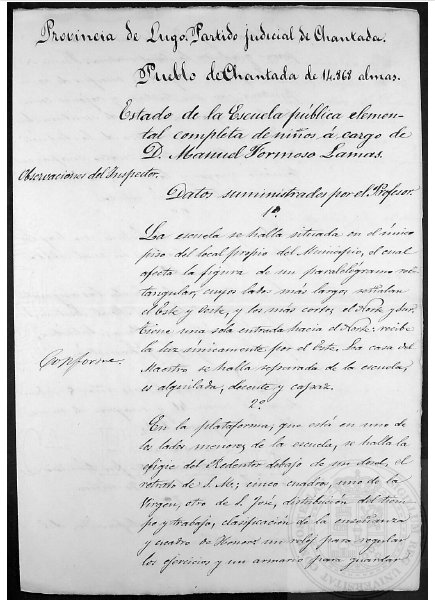 Provincia de Lugo. Partido judicial de Chantada.
Pueblo de Chantada de 14.868 almas.
Estado de la Escuela pública elemen-
tal completa de niños á cargo de
D. Manuel Formoso Lamas.
Observaciones del Inspector.
Datos suministrados por el Profesor.
1º
La escuela se halla situada en el único
piso del local propio del Municipio, el cual
afecta la figura de un paralelógramo rec-
tangular, cuyos lados más largos señalan
el Este y Oeste, y los más cortos el Norte y Sur.
Tiene una sola entrada hacia el Norte: recibe
la luz únicamente por el Este. La casa del
Conforme.
Maestro se halla separada de la escuela,
es alquilada, decente y capaz.
2º
En la plataforma, que está en uno de
los lados menores de la escuela, se halla la
efigie del Redentor debajo de un dosel, el
retrato de S. M.; cinco cuadros, uno de la
Virgen, otro de S. José, distribución del tiem-
po y trabajo, clasificación de la enseñanza
y cuadro de Honor: un reloj para regular
los ejercicios y un armario para guardar